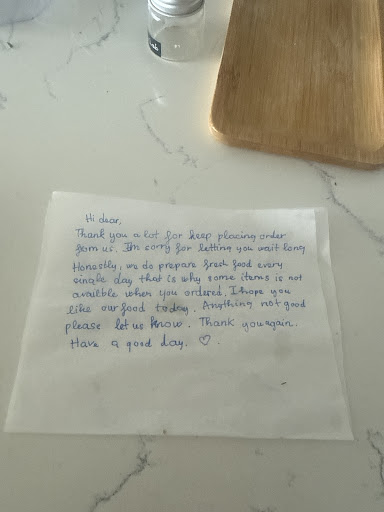 Hi dear,
Thank you a lot for keep placing order
from us. I'm sorry for letting you wait long
Honestly, we do prepare fresh food every
single day that is why some items is not
availble when you ordered. I hope you
like our food today. Anything not good
please let us know. Thank you again.
Have a good day. ♡.